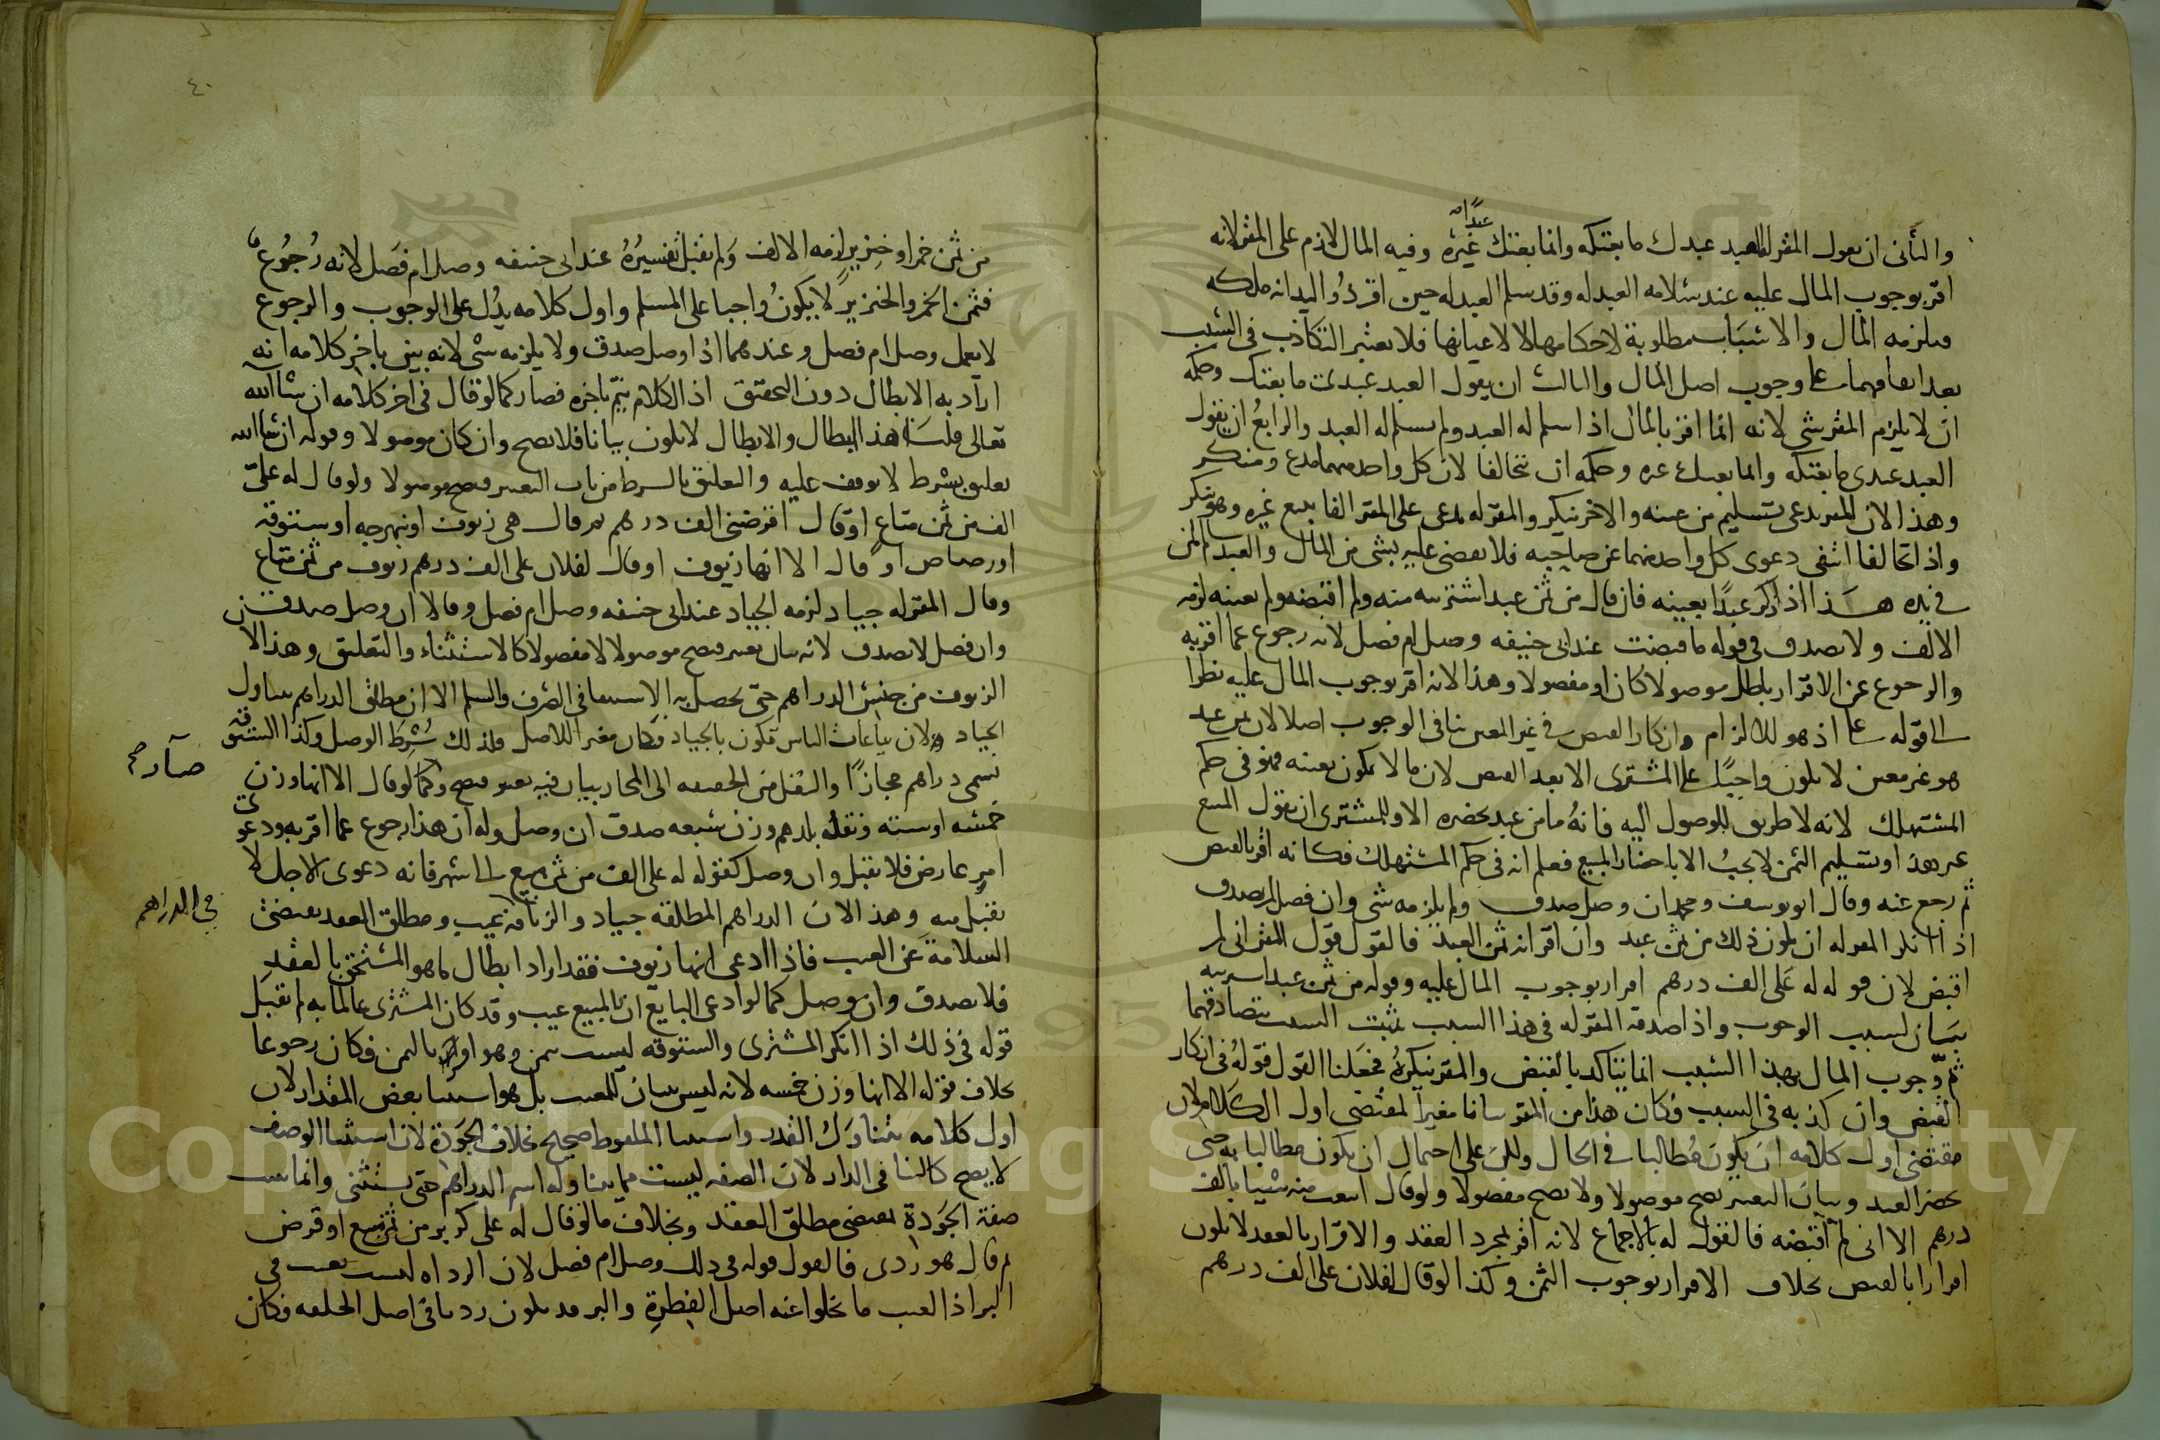 والثاني ان يقول المقر له العبد عبدك ما بعتكه وانما بعتك عبدا غيره وفيه المال لازم على المقر لانه
اقر بوجوب المال عليه عند سلامه العبد له وقد سلم العبد له حين اقر ذو اليد انه ملكه
فيلزمه المال والاسباب مطلوبة لاحكامها لا لاعيانها فلا يعتبر التكاذب في السبب
بعد اتفاقهما على وجوب اصل المال والثالث ان يقول العبد عبدي ما بعتك وحكمه
ان لا يلزم المقر شي لانه انما اقر بالمال اذا سلم له العبد ولم يسلم له العبد والرابع ان يقول
العبد عبدي ما بعتكه وانما بعتك غيره وحكمه ان تحالفا لان كل واحد منهما مدع ومنكر
وهذا لان المقر يدعى تسليم من عينه والاخر ينكر والمقر له يدعى على المقر الفا ببيع غيره وهو ينكر
واذا تحالفا انتفى دعوى كل واحد منهما عن صاحبه فلا يقضى عليه بشي من المال والعبد سالم لمن
في يده هذا اذا ذكر عبدا بعينه فان قال من ثمن عبد اشتريته منه ولم اقبضه ولم يعينه لزمه
الالف ولا يصدق في قوله ما قبضت عند ابي حنيفه وصل ام فصل لانه رجوع عما اقر به
والرجوع عن الاقرار باطل موصولا كان او مفصولا وهذا لانه اقر بوجوب المال عليه نظرا
الى قوله على اذ هو للالزام وانكار القبض في غير المعين ينافى الوجوب اصلا لان ثمن عبد
هو غير معين لا يكون واجبا على المشترى الا بعد القبض لان ما لا يكون بعينه فهو في حكم
المستهلك لانه لا طريق للوصول اليه فانه ما من عبد يحضره الا وللمشترى ان يقول المبيع
غير هذا وتسليم الثمن لا يجب الا باحضار المبيع فعلم انه في حكم المستهلك فكانه اقر بالقبض
ثم رجع عنه وقال ابو يوسف ومحمد ان وصل صدق ولم يلزمه شي وان فصل لم يصدق
اذا انكر المقر له ان يكون ذلك من ثمن عبد وان اقر انه ثمن العبد فالقول قول المقر انى لم
اقبض لان قوله له على الف درهم اقرار بوجوب المال عليه وقوله من ثمن عبد اشتريته
بيان لسبب الوجوب واذا صدقه المقر له في هذا السبب ثبت السبب بتصادقهما
ثم وجوب المال بهذا السبب انما يتاكد بالقبض والمقر ينكره فجعلنا القول قوله في انكار
القبض وان كذبه في السبب فكان هذا من المقر بيانا مغيرا لمقتضى اول الكلام لان
مقتضى اول كلامه ان يكون مطالبا في الحال ولكن على احتمال ان يكون مطالبا به حتى
يحضر العبد وبيان التغيير يصح موصولا ولا يصح مفصولا ولو قال ابتعت منه شيا بالف
درهم الا انى لم اقبضه فالقول له بالاجماع لانه اقر بمجرد العقد والاقرار بالعقد لا يكون
اقرارا بالقبض بخلاف الاقرار بوجوب الثمن وكذا لو قال لفلان على الف درهم
٤٠
من ثمن خمر او خنزير لزمه الالف ولم يقبل تفسيره عند ابي حنيفه وصل ام فصل لانه رجوع
فثمن الخمر والخنزير لا يكون واجبا على المسلم واول كلامه يدل على الوجوب والرجوع
لا يعمل وصل ام فصل وعندهما اذا وصل صدق ولا يلزمه شي لانه بين باخر كلامه انه
اراد به الابطال دون التحقيق اذ الكلام يتم باخره فصار كما لو قال في اخر كلامه ان شا الله
تعالى قلنا هذا ابطال والابطال لا يكون بيانا فلا يصح وان كان موصولا وقوله ان شا الله
تعليق بشرط لا يوقف عليه والتعليق بالشرط من باب التغيير فيصح موصولا ولو قال له على
الف من ثمن متاع او قال اقرضني الف درهم ثم قال هي زيوف او نبهرجه او ستوقه
او رصاص او قال الا انها زيوف او قال لفلان على الف درهم زيوف من ثمن متاع
وقال المقر له جياد لزمه الجياد عند ابي حنيفه وصل ام فصل وقالا ان وصل صدق
وان فصل لا يصدق لانه بيان تغيير فيصح موصولا لا مفصولا كالاستثناء والتعليق وهذا لان
الزيوف من جنس الدراهم حتى يحصل به الاستيفا في الصرف والسلم الا ان مطلق الدراهم يتناول
الجياد ولان بياعات الناس تكون بالجياد فكان مغيرا للاصل فلذلك شرط الوصل وكذا الستوقه
تسمى دراهم مجازا والنقل من الحقيقه الى المجاز بيان فيه تغيير فيصح وصار كما لو قال الا انها وزن
خمسه او سته ونقد بلدهم وزن سبعه صدق ان وصل وله ان هذا رجوع عما اقر به ودعوى
امر عارض فلا يقبل وان وصل كقوله له على الف من ثمن مبيع الى شهر فانه دعوى الاجل لا
يقبل منه وهذا لان الدراهم المطلقه جياد والزيافة في الدراهم عيب ومطلق العقد يقتضى
السلامة عن العيب فاذا ادعى انها زيوف فقد اراد ابطال ما هو المستحق بالعقد
فلا يصدق وان وصل كما لو ادعى البايع ان بالمبيع عيب وقد كان المشترى عالما به لم يقبل
قوله في ذلك اذا انكر المشترى والستوقه ليست بثمن وهو اقر بالثمن فكان رجوعا
بخلاف قوله الا انها وزن خمسه لانه ليس بيان للعيب بل هو استثنا بعض المقدار لان
اول كلامه يتناول القدر واستثنا الملفوظ صحيح بخلاف الجودة لان استثنا الوصف
لا يصح كالبنا في الدار لان الصفه ليست مما يتناوله اسم الدراهم حتى يستثنى وانما يثبت
صفة الجودة بمقتضى مطلق العقد وبخلاف ما لو قال له على كر بر من ثمن مبيع او قرض
ثم قال هو ردى فالقول قوله في ذلك وصل ام فصل لان الرداه ليست بعيب في
البر اذ العيب ما يخلوا عنه اصل الفطرة والبر قد يكون رديا في اصل الخلقه فكان
صار صح
في الدراهم
Copyright © King Saud University